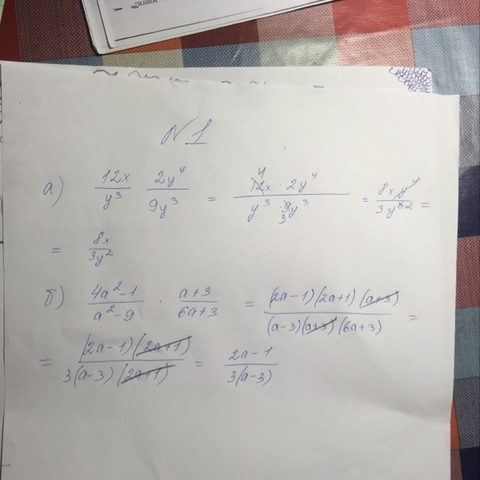 N 1
а) 12x/y³ 2y⁴/9y³ = 12x · 2y⁴/y³ · 9y³ = 8x y⁴/3y⁶ =
= 8x/3y²
б) 4a²-1/a²-9 · a+3/6a+3 = (2a-1)(2a+1)(a+3)/(a-3)(a+3)(6a+3) =
= (2a-1)(2a+1)/3(a-3)(2a+1) = 2a-1/3(a-3)